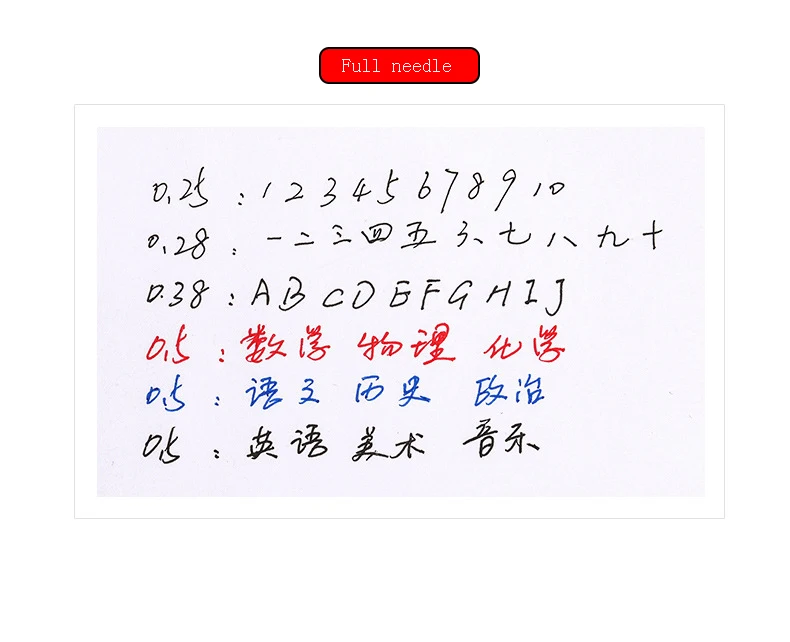 Full needle
0.25 : 1 2 3 4 5 6 7 8 9 10
0.28 : 一 二 三 四 五 六 七 八 九 十
0.38 : A B C D E F G H I J
0.5 : 数学 物理 化学
0.5 : 语文 历史 政治
0.5 : 英语 美术 音乐